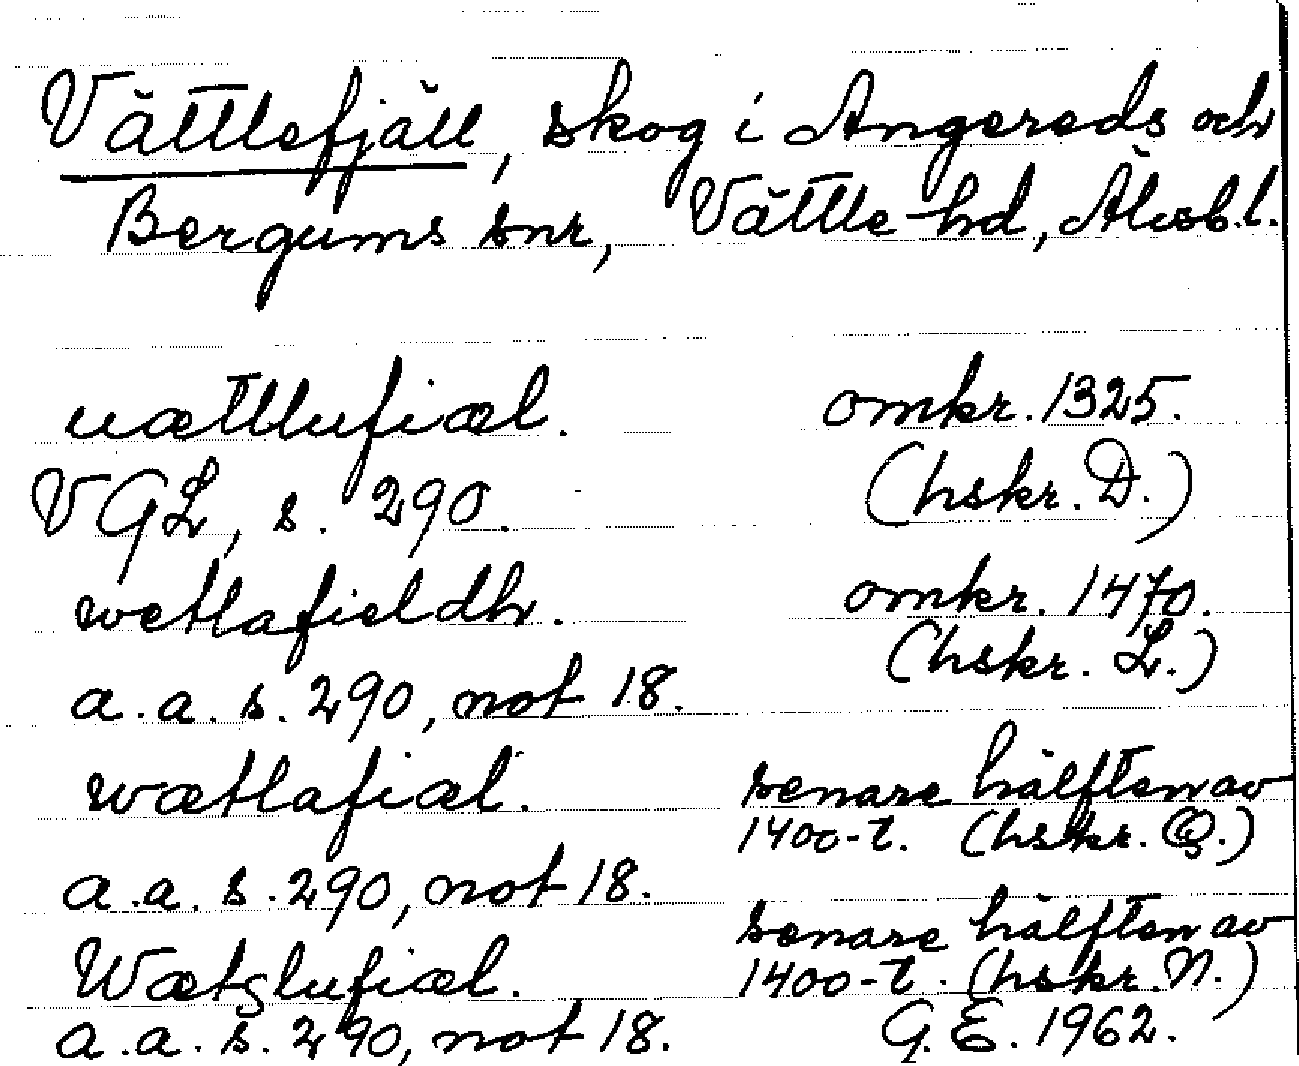 Vättlefjäll, skog i Angereds och
Bergums snr, Vättle hd, Älvsb.l.
uættlufiæl. omkr. 1325.
VGL, s. 290. (hskr. D.)
wetlafieldh. omkr. 1470.
a.a. s. 290, not 18. (hskr. L.)
wætlafiæl. senare hälften av
1400-t. (hskr. Q.)
a.a. s. 290, not 18.
Wætzlufiæl. senare hälften av
1400-t. (hskr. N.)
a.a. s. 290, not 18. G.E. 1962.